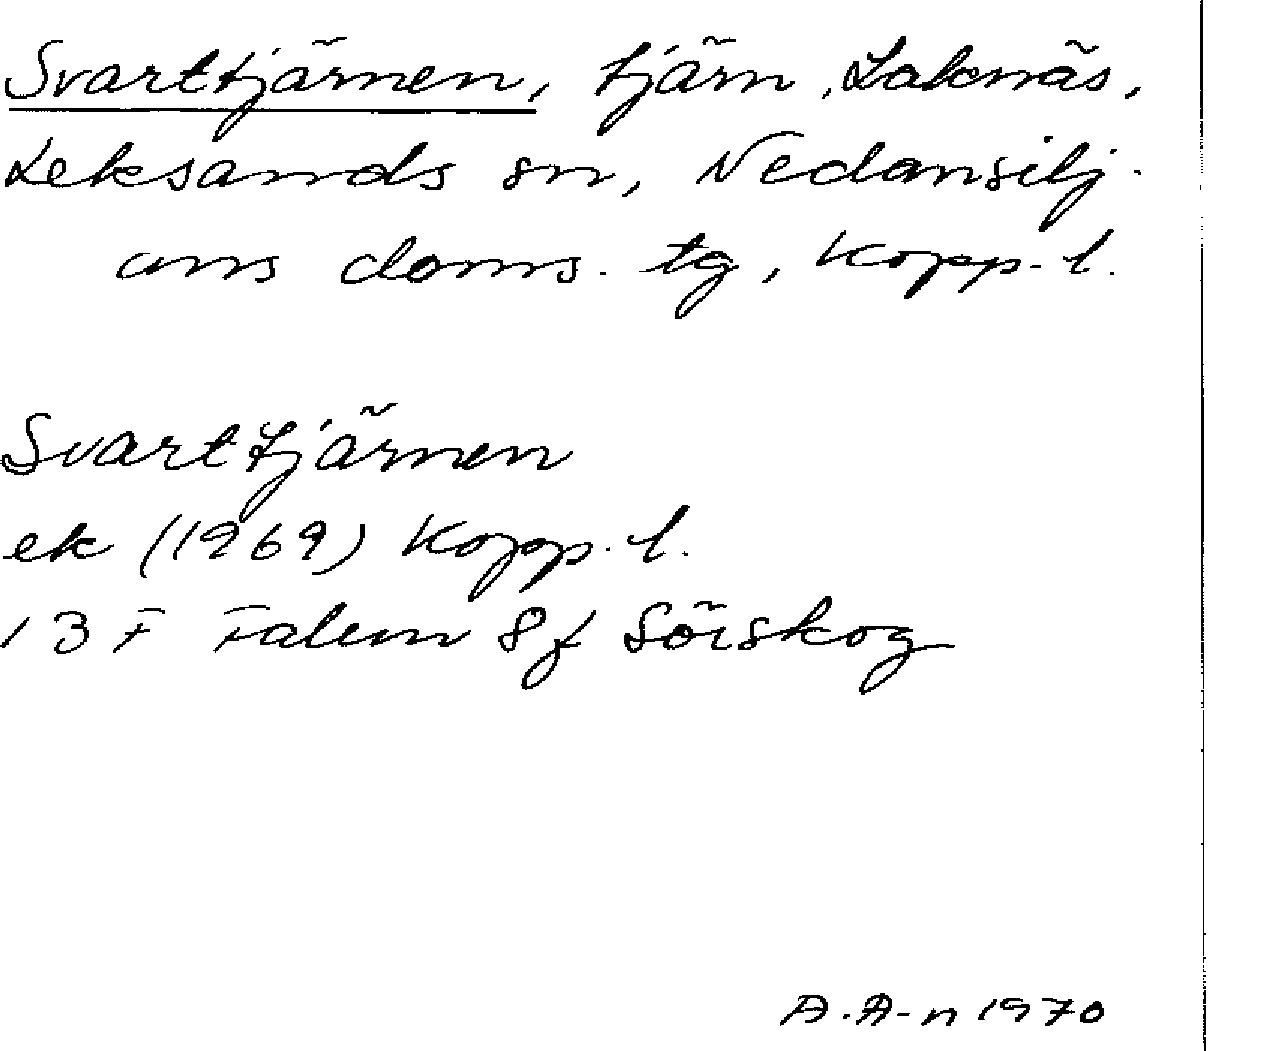 Svarttjärnen, tjärn, Laknäs,
Leksands sn, Nedansilj-
ans doms. tg, Kopp. l.
Svarttjärnen
ek (1969) Kopp. l.
13 F Falun 8f Sörskog
A. A-n 1970